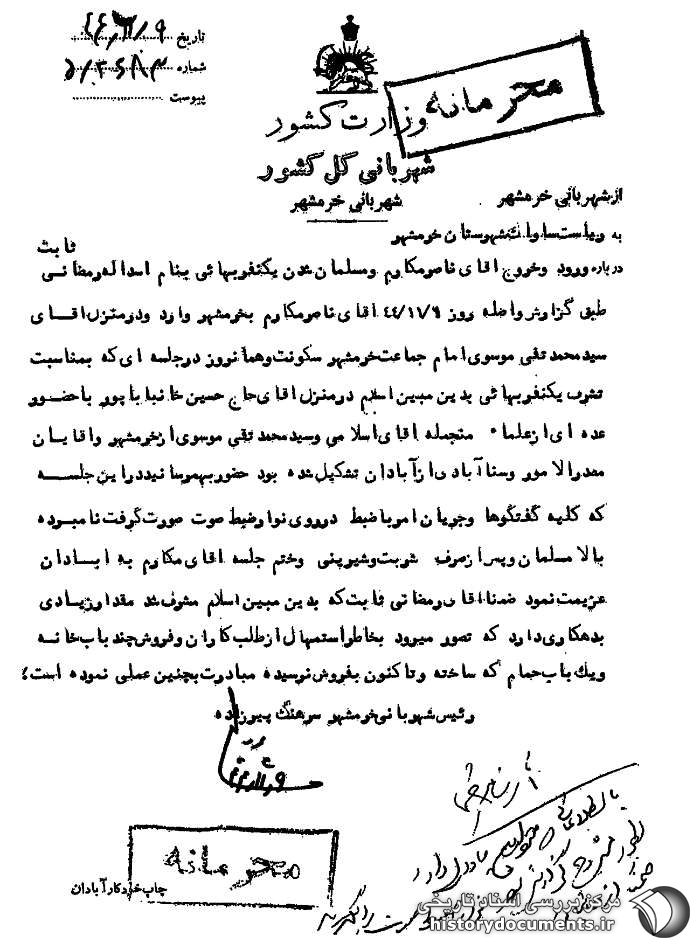 تاریخ
شماره
پیوست
محرمانه
وزارت کشور
شهربانی کل کشور
شهربانی خرمشهر
از شهربانی خرمشهر
به ریاست ساواک شهرستان خرمشهر
درباره ورود وخروج اقای ناصرمکارم ومسلمان شدن یکنفربهائی بنام اسداله رمضانی ثابت
طبق گزارش واصله روز ۴۴/۱۱/۹ اقای ناصرمکارم بخرمشهر وارد ودرمنزل اقای
سیدمحمدتقی موسوی امام جماعت خرمشهر سکونت وهمانروز درجلسه ای که بمناسبت
تشرف یکنفربهائی بدین مبین اسلام درمنزل اقای حاج حسین خانباباپور باحضور
عده ای ازعلماء منجمله اقای اسلامی وسیدمحمدتقی موسوی ازخرمشهر واقایان
صدرالامور وسناآبادی ازآبادان تشکیل شده بود حضوربهمرسانیددراین جلسه
که کلیه گفتگوها وجریان امرباضبط درروی نوارضبط صوت صورت گرفت نامبرده
بالا مسلمان وپس ازصرف شربت وشیرینی وختم جلسه اقای مکارم به ابادان
عزیمت نمود ضمنااقای رمضانی ثابت که بدین مبین اسلام مشرف شد مقدارزیادی
بدهکاری دارد که تصور میرود بخاطراستمهال ازطلب کاران وفروش چندباب خانه
ویک باب حمام که ساخته وتاکنون بفروش نرسیده مبادرت بچنین عملی نموده است؛
رئیس شهربانی خرمشهر سرهنگ پیروزاده
محرمانه
چاپ خودکارآبادان
مرکز بررسی اسناد تاریخی
historydocuments.ir